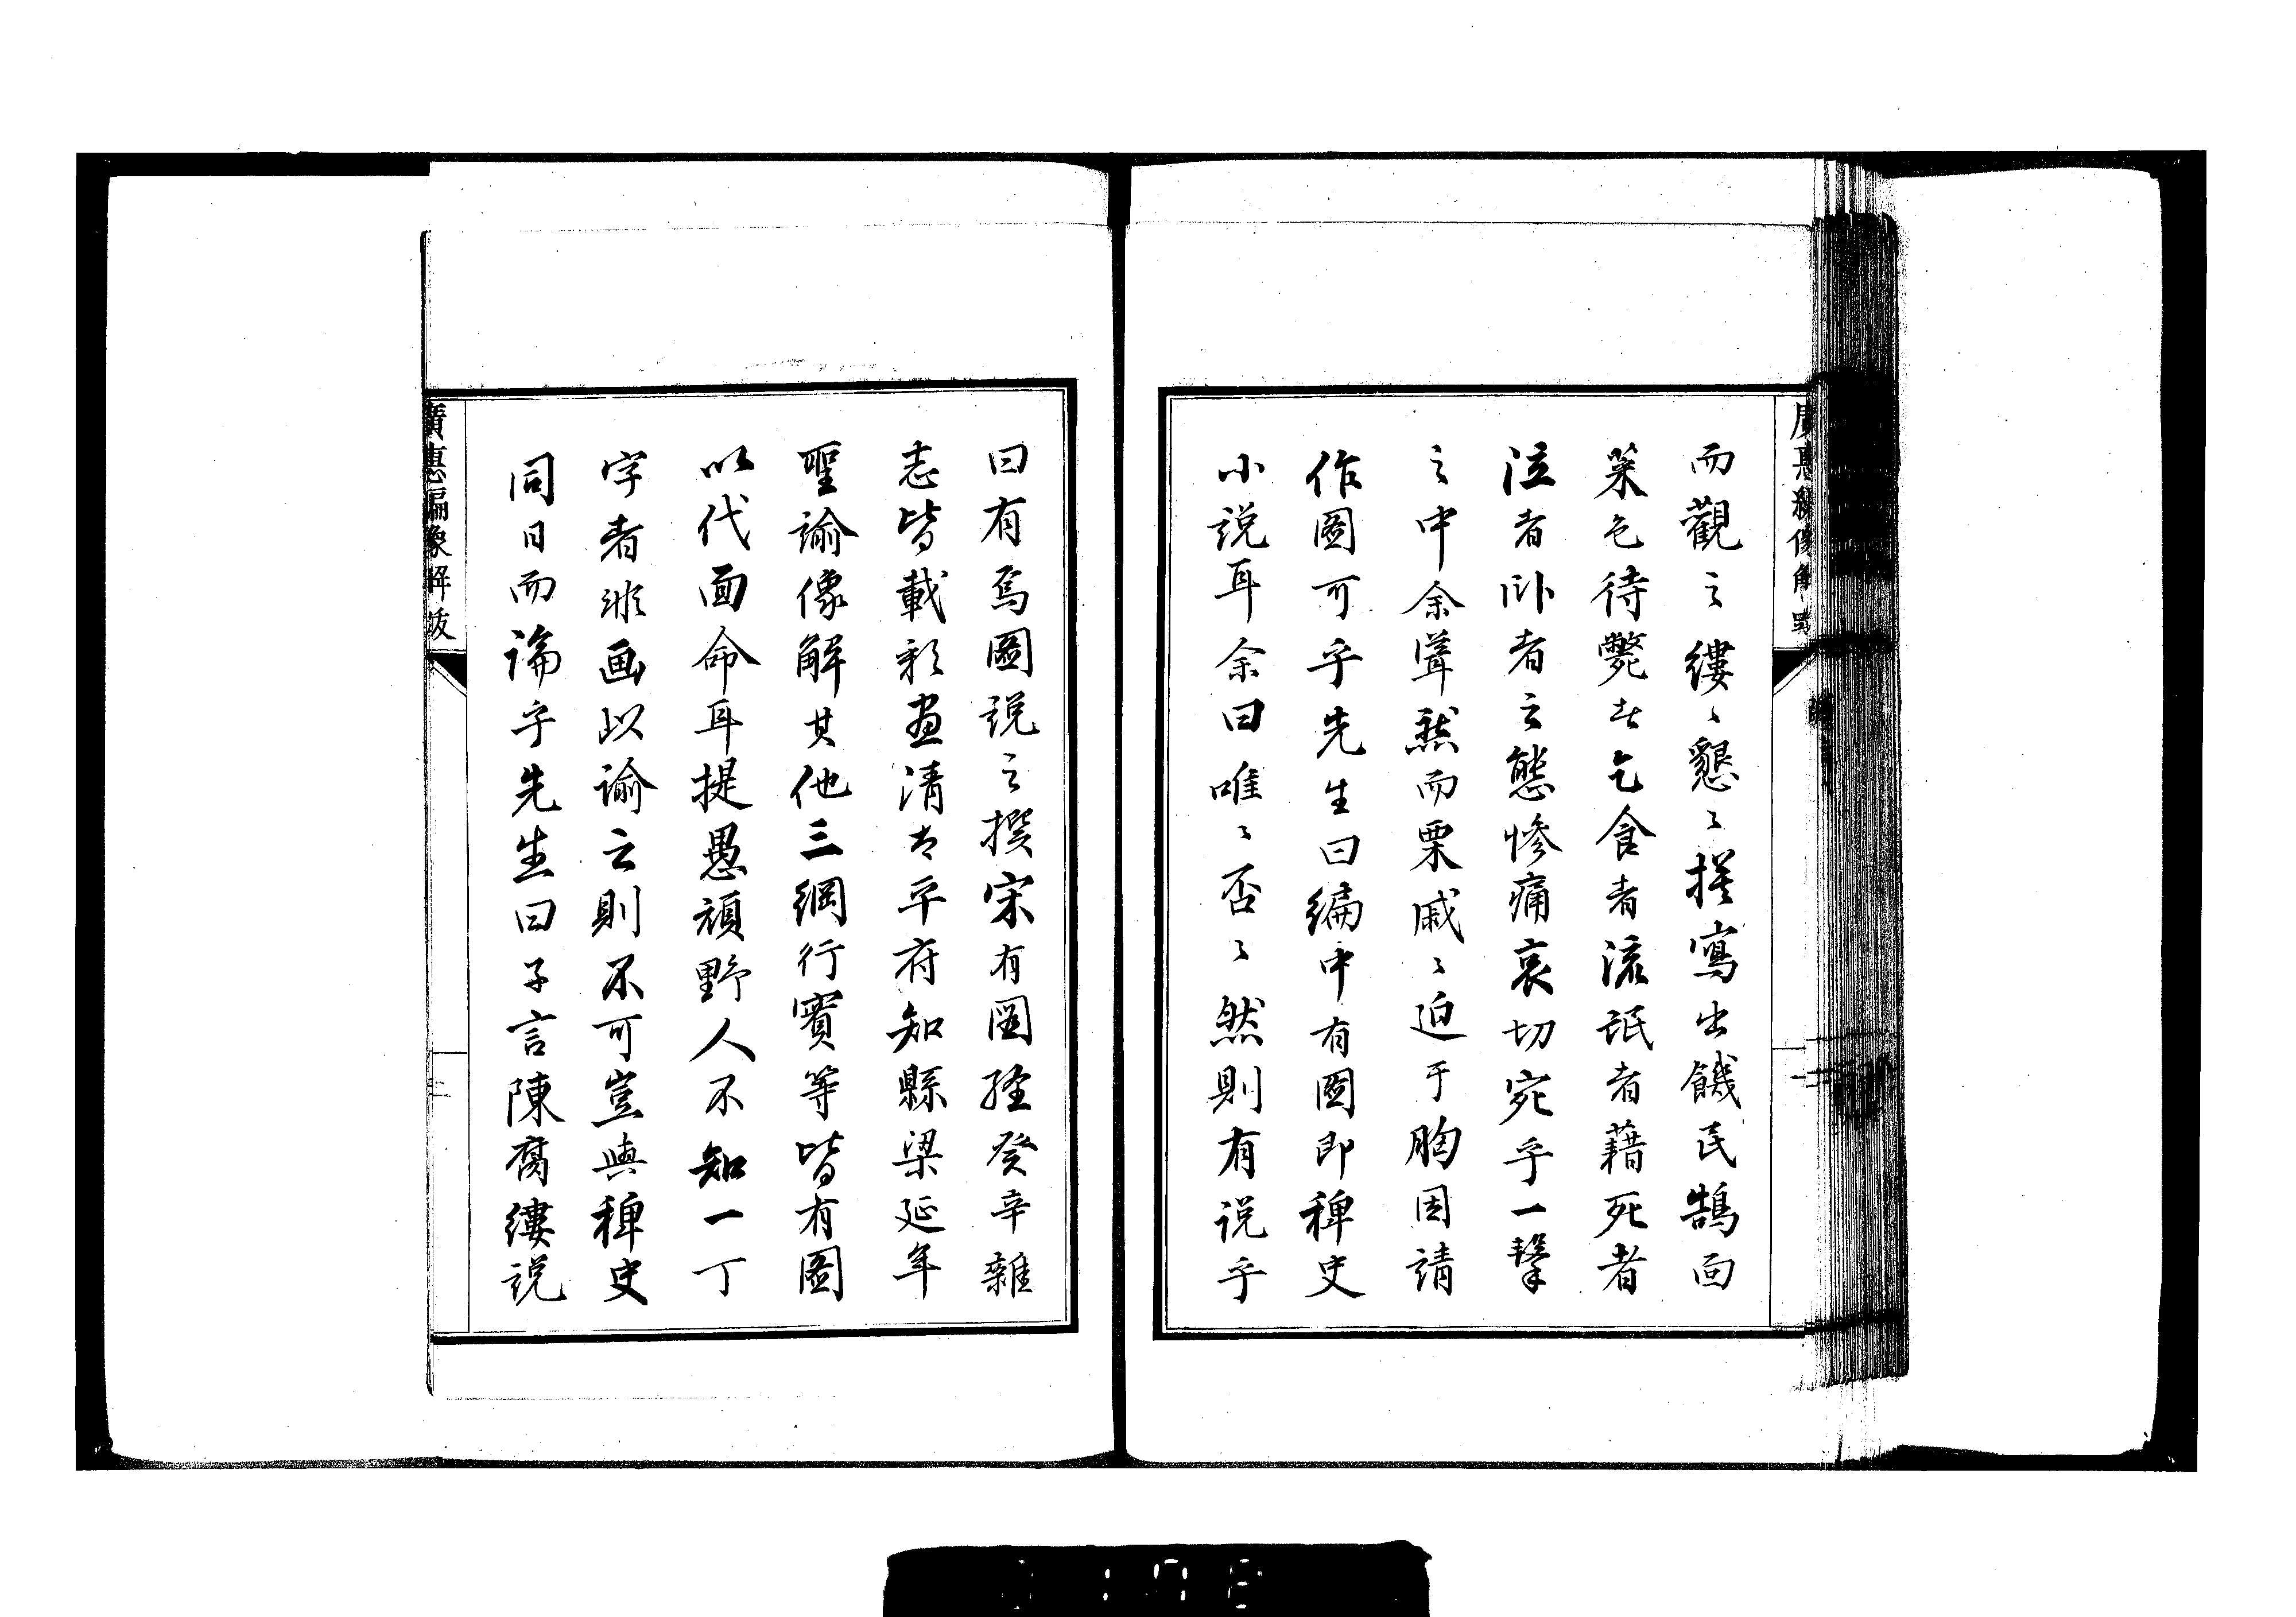 而觀之縷〻懇〻摸寫出饑民鵠面
菜色待斃者乞食者流氓者藉死者
泣者卧者之態慘痛哀切宛乎一擊
之中余聳然而栗戚〻迫于胸因請
作圖可乎先生曰編中有圖即稗史
小說耳余曰唯〻否〻然則有說乎
曰有焉圖說之撰宋有圖經癸辛雜
志皆載彩畫清太平府知縣梁延年
聖諭像解其他三綱行實等皆有圖
以代面命耳提愚頑野人不知一丁
字者非画以諭之則不可豈與稗史
同日而論乎先生曰子言陳腐縷說
廣惠編像解跋
二